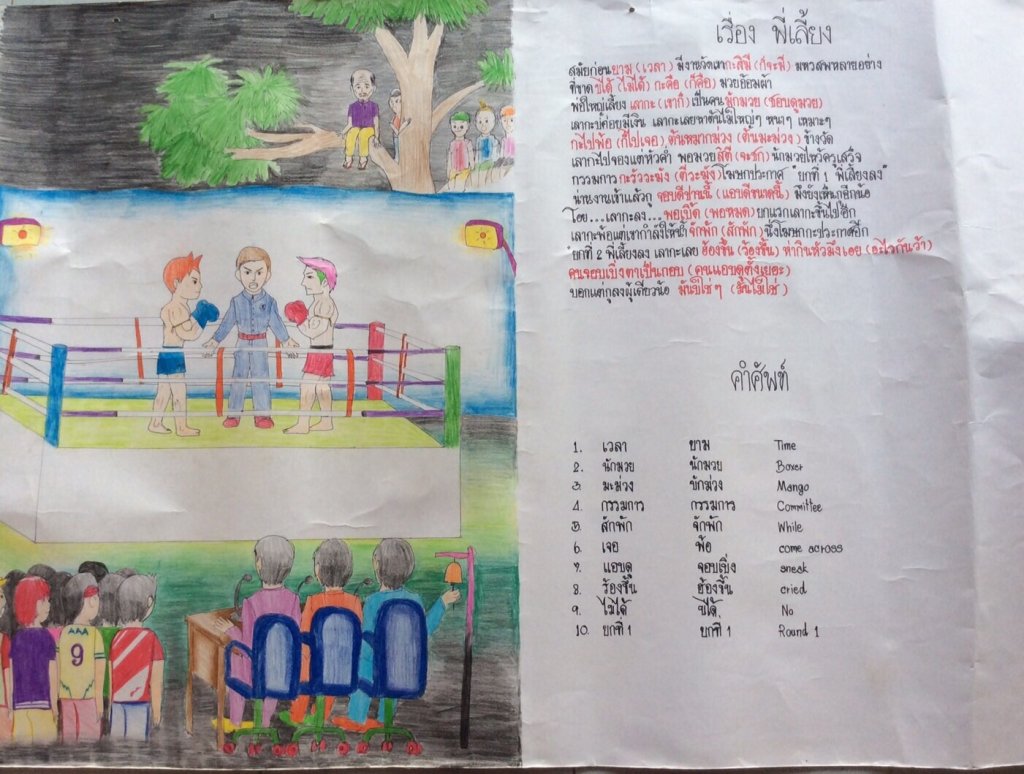 เรื่อง พี่เลี้ยง
สมัยก่อนยาม (เวลา) มีงานวัดเทากะสิมี (ก็จะมี) มหรสพหลายอย่าง
ที่ขาดบ่ได้ (ไม่ได้) กะคือ (ก็คือ) มวยอ้อมผ้า
พ่อใหญ่เลี้ยง เลากะ (เขาก็) เป็นคนมักมวย (ชอบดูมวย)
เลากะบ่ค่อยมีเงิน เลากะเลยหาต้นไม้ใหญ่ๆ หนาๆ เหมาะๆ
กะไปพ้อ (ก็ไปเจอ) ต้นหมากม่วง (ต้นมะม่วง) ข้างวัด
เลากะไปจองแต่หัวค่ำ พอมวยสิตี (จะชก) นักมวยไหว้ครูเสร็จ
กรรมการกะรัวระฆัง (ตีระฆัง) โฆษกประกาศ "ยกที่ 1 พี่เลี้ยงลง"
นำงานเขาแล้วกู จอบดีปานนี้ (แอบดีขนาดนี้) มึงยังเห็นกูอีกน้อ
โอย...เลากะลง... พอเบิ้ด (พอหมด) ยกแรกเลากะขึ้นไปอีก
เลากะพ้อแต่เขากำลังให้น้ำ จักพัก (สักพัก) นึ่งโฆษกกะประกาศอีก
"ยกที่ 2 พี่เลี้ยงลง เลากะเลย ฮ้องขึ้น (ร้องขึ้น) ห่ากินหัวมึงเอย (อะไรกันว้า)
คนจอบเบิ่งตาเป็นกอบ (คนแอบดูตั้งเยอะ)
บอกแต่กูลงผู้เดียวน้อ มันบ่ใช่ๆ (มันไม่ใช่)
คำศัพท์
1. เวลา ยาม Time
2. นักมวย นักมวย Boxer
3. มะม่วง บักม่วง Mango
4. กรรมการ กรรมการ Committee
5. สักพัก จักพัก While
6. เจอ พ้อ come across
7. แอบดู จอบเบิ่ง sneak
8. ร้องขึ้น ฮ้องขึ้น cried
9. ไม่ได้ บ่ได้ No
10. ยกที่ 1 ยกที่ 1 Round 1
AAA
9